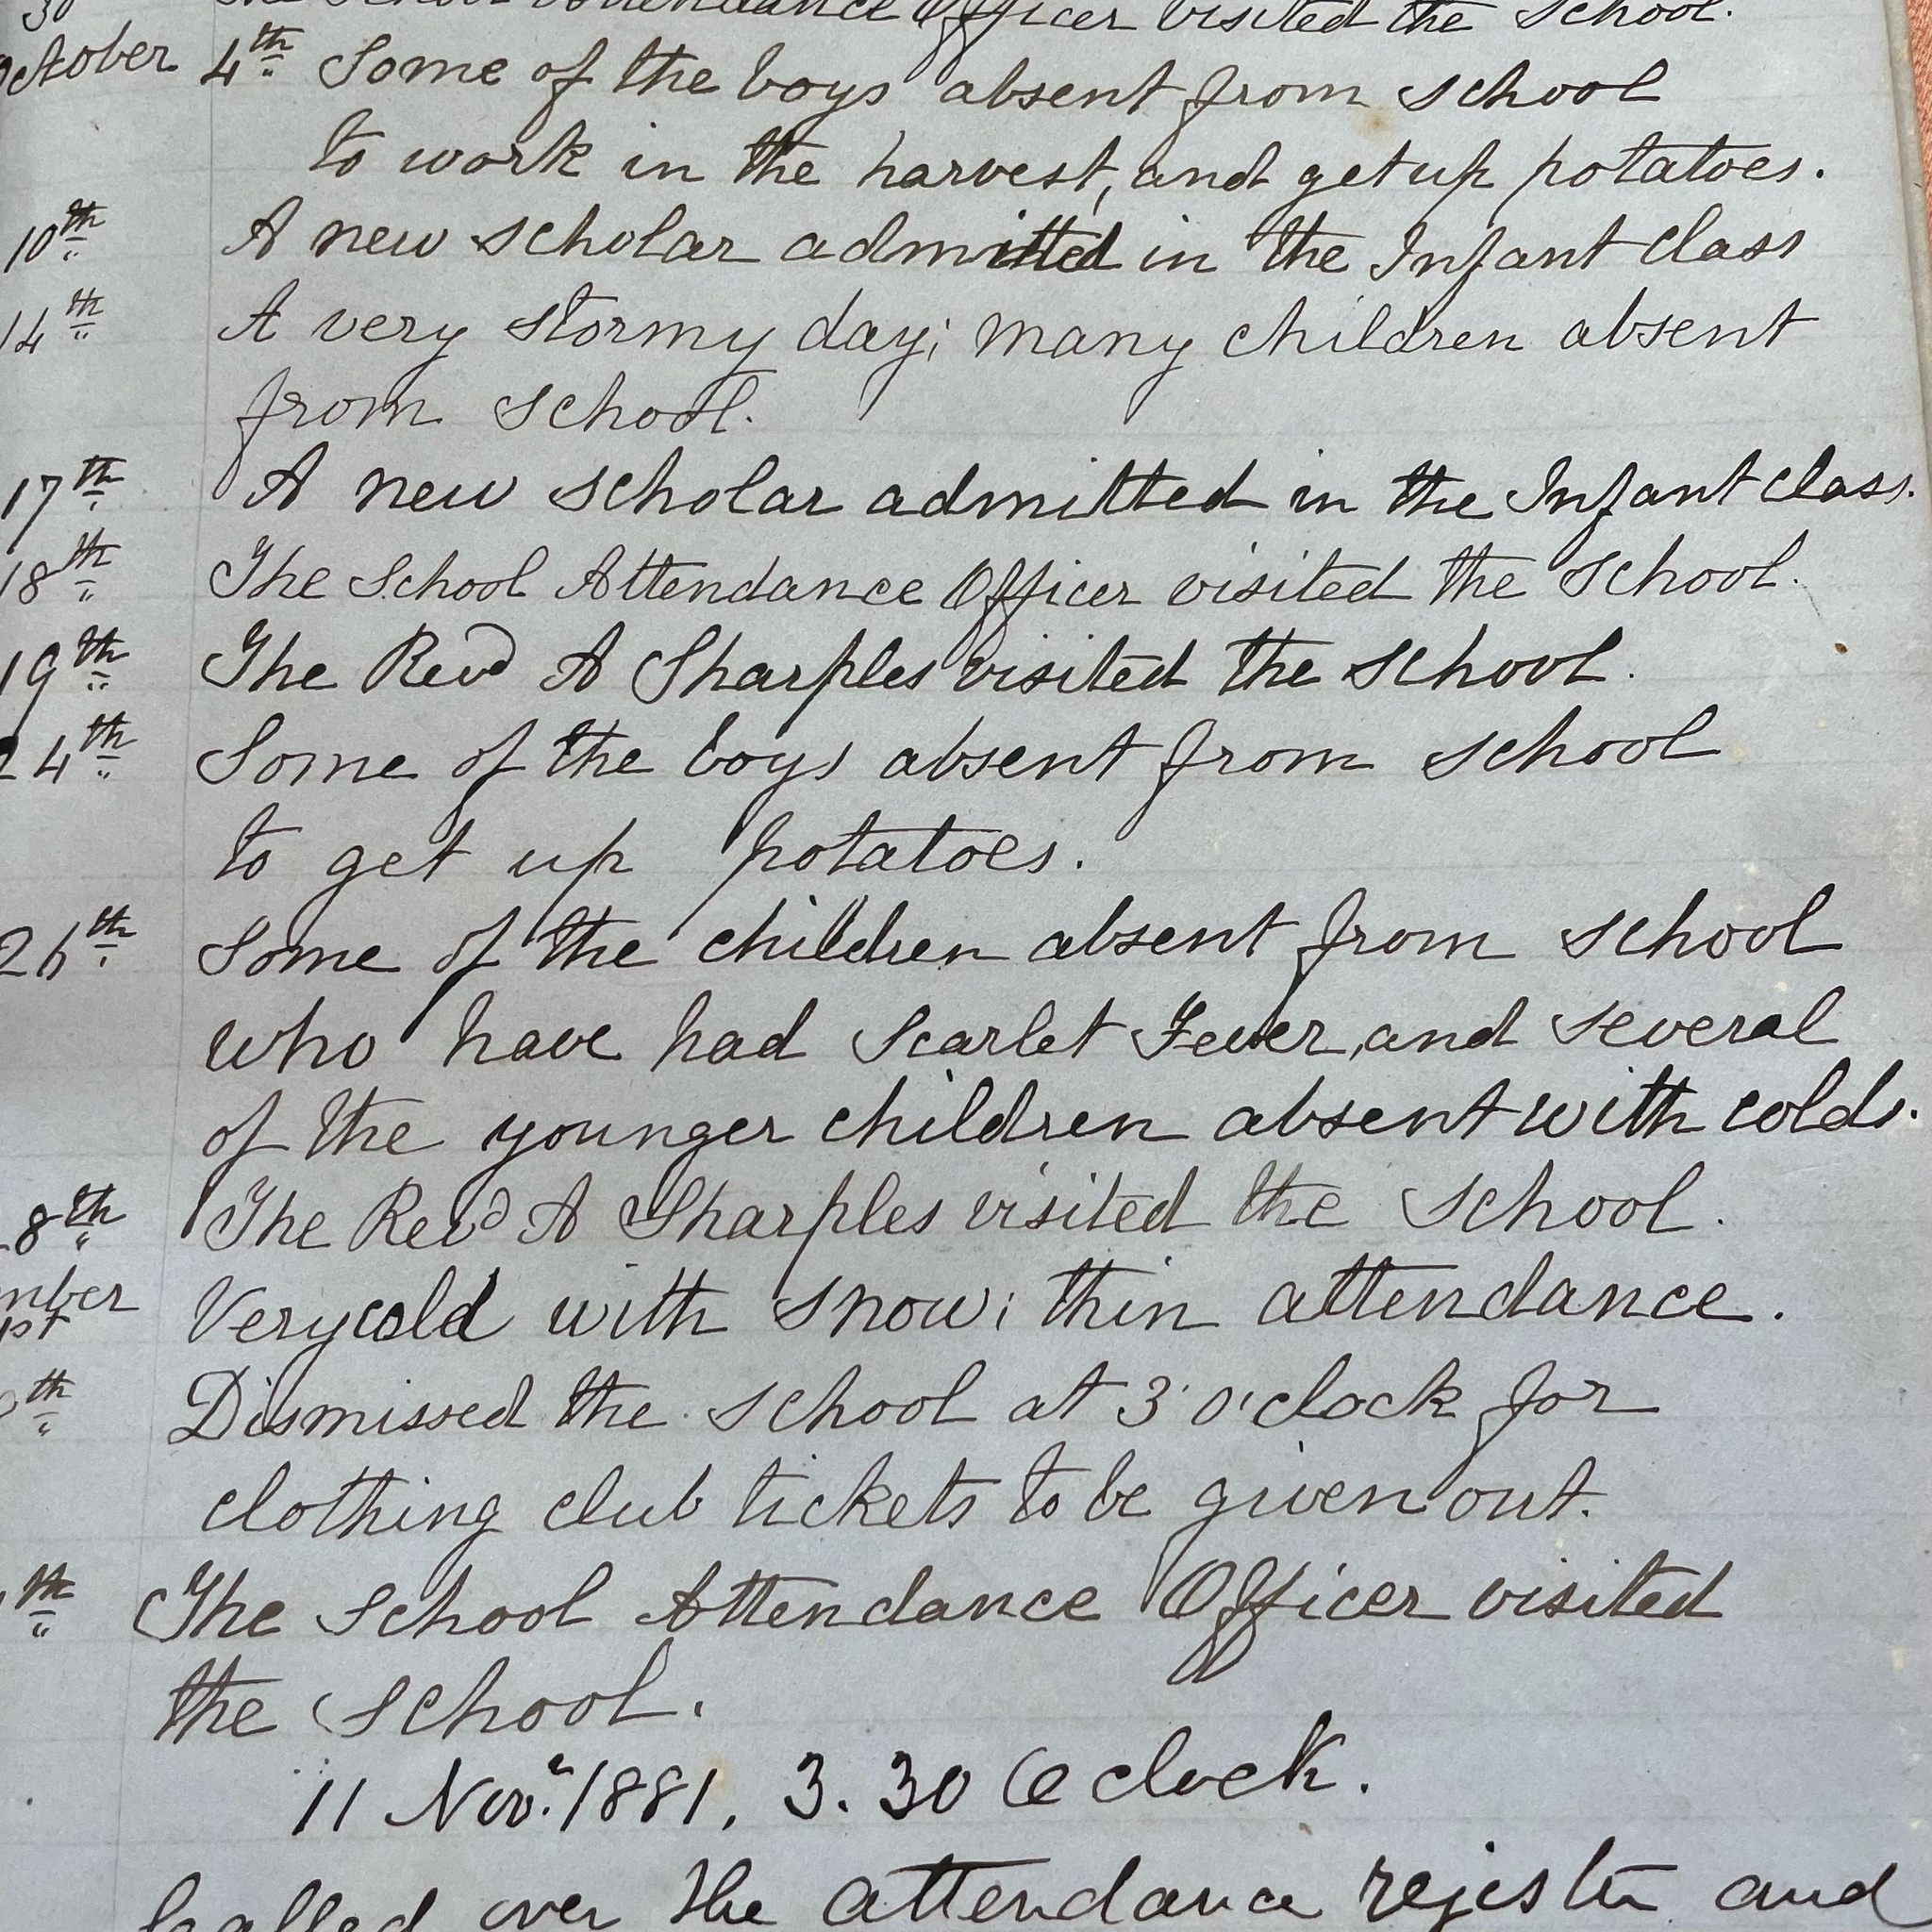 30 The School Attendance Officer visited the School.
October 4th Some of the boys absent from school
to work in the harvest, and get up potatoes.
10th A new scholar admitted in the Infant Class
14th A very stormy day; many children absent
from school.
17th A new scholar admitted in the Infant Class.
18th The School Attendance Officer visited the School.
19th The Revd A Sharples visited the School.
24th Some of the boys absent from school
to get up potatoes.
26th Some of the children absent from school
who have had Scarlet Fever, and several
of the younger children absent with colds.
8th The Revd A Sharples visited the School.
mber
1st Very cold with snow; thin attendance.
th Dismissed the school at 3 o'clock for
clothing club tickets to be given out.
th The School Attendance Officer visited
the School.
11 Novr. 1881, 3.30 O clock.
Called over the attendance register and